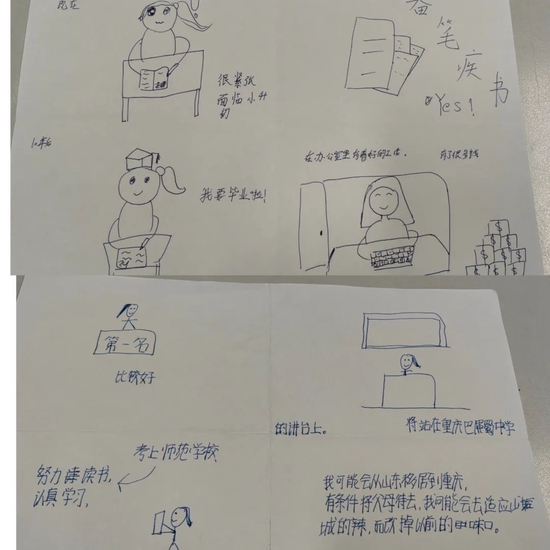 现在
很紧张
面临小升
初
奋
笔
疾
书
Yes!
10年后
我要毕业啦!
在办公室里有着好的工作.
有了很多钱
$
$ $
$ $ $
第一名
比较好
将站在重庆巴蜀中学
的讲台上。
考上师范学校
努力读书,
认真学习,
我可能会从山东移居到重庆,
有条件将父母带去,我可能会去适应山
城的辣,而改掉以前的口味。